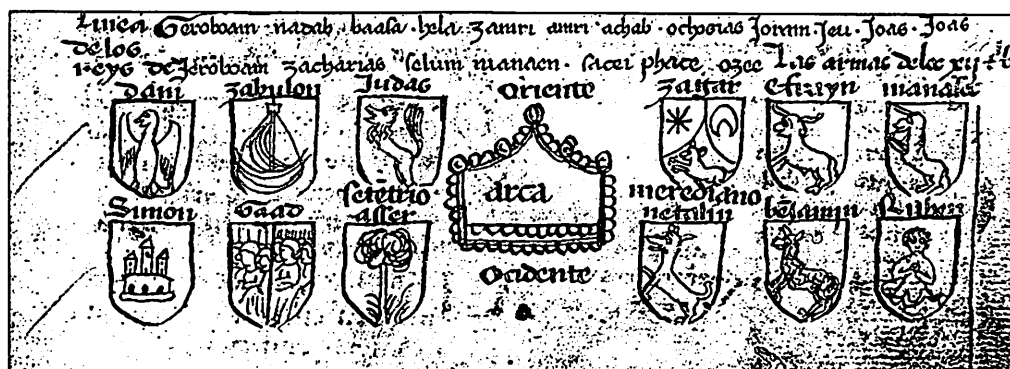 Linea Geroboam nadab baasa hela zamri amri achab ochosias Joram Jeu Joas Joas
de los
reys de Jeroboam zacharias selum manaen facei phace ozee Las armas de los xij
Dani zabulon Judas oriente zattar efrayn manase
arca
Simon Gaad setētrio asser merediano netalin bējamin Ruben
Ocidente